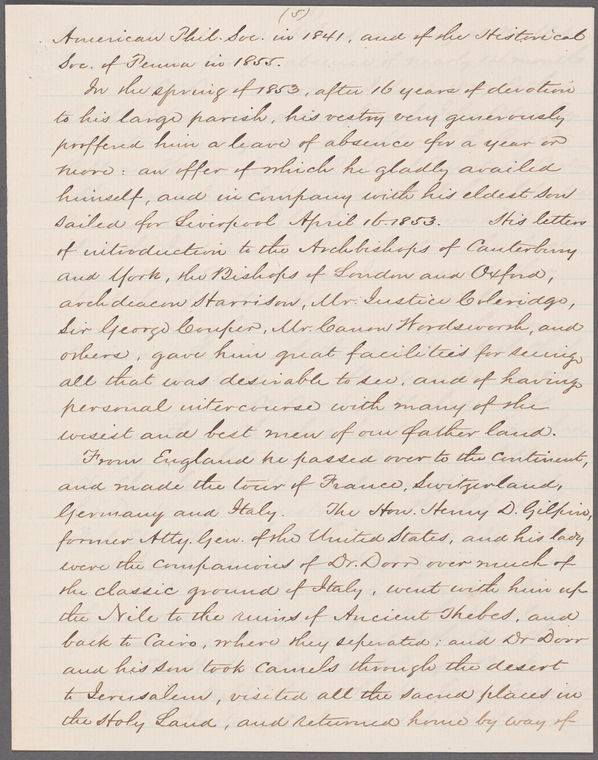 (5)
American Phil. Soc. in 1841, and of the Historical
Soc. of Penna in 1855.
In the spring of 1853, after 16 years of devotion
to his large parish, his vestry very generously
proffered him a leave of absence for a year or
more: an offer of which he gladly availed
himself, and in company with his eldest son
sailed for Liverpool April 16. 1853. His letters
of introduction to the Archbishops of Canterbury
and York, the Bishops of London and Oxford,
archdeacon Harrison, Mr. Justice Coleridge,
Sir George Couper, Mr. Canon Wordsworth, and
others, gave him great facilities for seeing
all that was desirable to see, and of having
personal intercourse with many of the
wisest and best men of our father land.
From England he passed over to the continent,
and made the tour of France, Switzerland,
Germany and Italy. The Hon. Henry D. Gilpin,
former Atty. Gen. of the United States, and his lady
were the companions of Dr. Dorr over much of
the classic ground of Italy, went with him up
the Nile to the ruins of Ancient Thebes, and
back to Cairo, where they seperated; and Dr Dorr
and his son took camels through the desert
to Jerusalem, visited all the sacred places in
the Holy Land, and returned home by way of